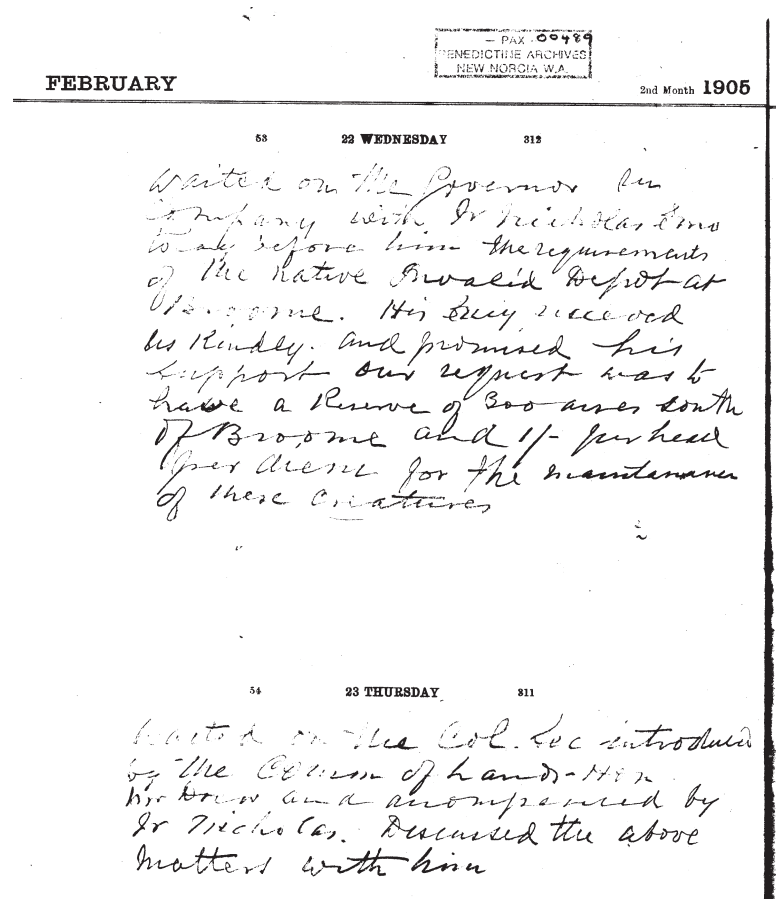 – PAX – 00489
BENEDICTINE ARCHIVES
NEW NORCIA W.A.
FEBRUARY
2nd Month 1905
53 22 WEDNESDAY 312
Waited on the Governor in
Company with Fr Nicholas Emo
to lay before him the requirements
of the Native Invalid Depôt at
Broome. His Excy received
us Kindly. And promised his
support our request was to
have a Reserve of 300 acres South
of Broome and 1/- per head
per diem for the maintenance
of these Creatures
54 23 THURSDAY 311
Waited on the Col. Sec introduced
by the Comm of Lands - Hon
Mr Drew and accompanied by
Fr Nicholas. Discussed the above
Matters with him